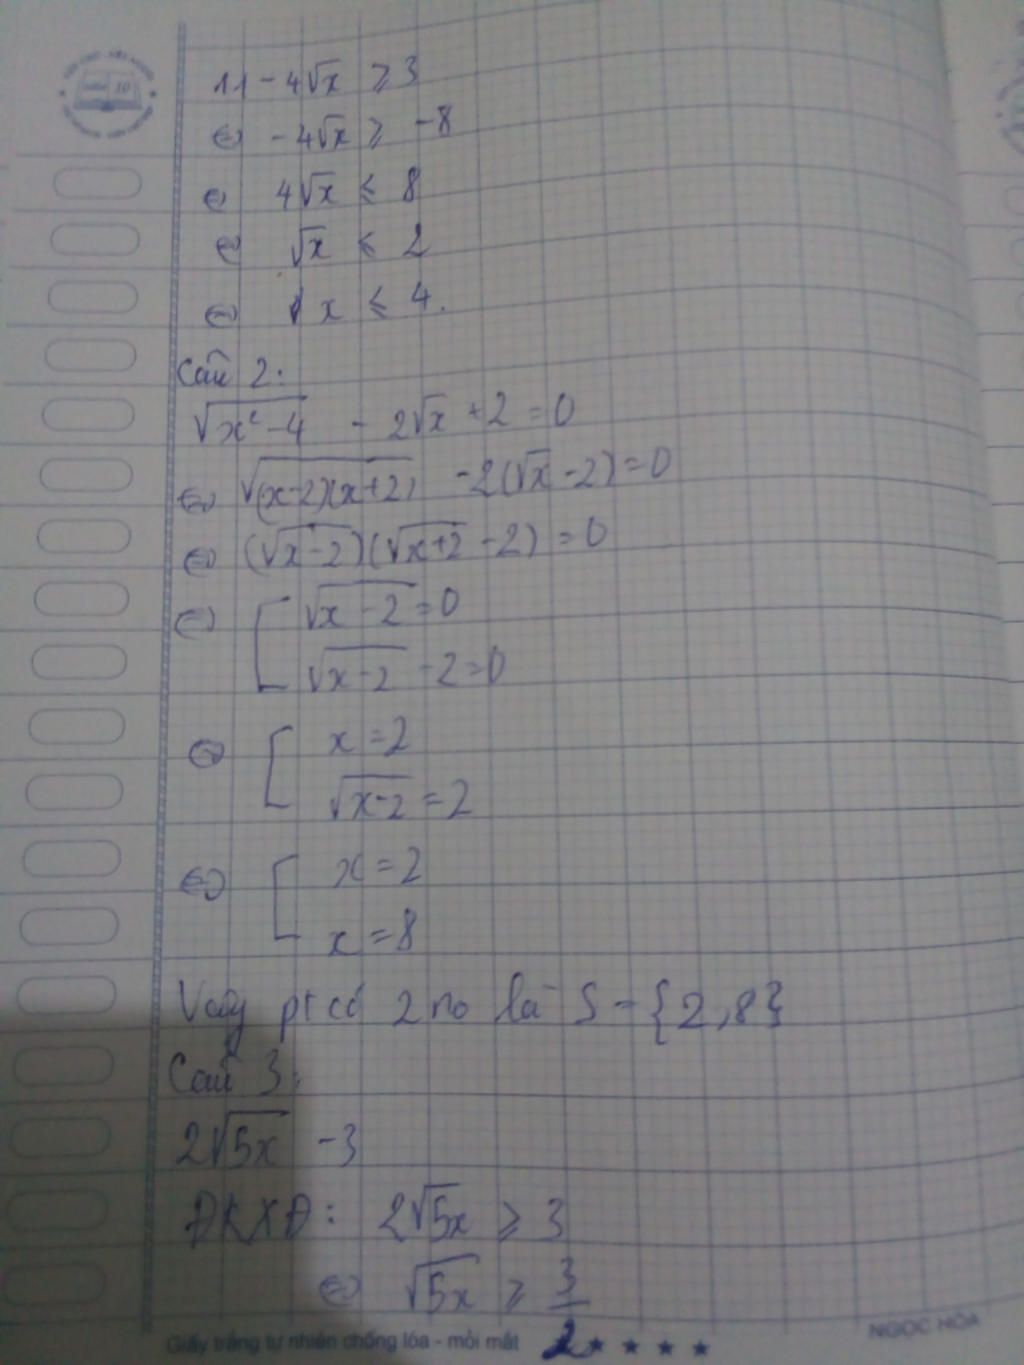 11 - 4√x ≥ 3
⇔ - 4√x ≥ -8
⇔ 4√x ≤ 8
⇔ √x ≤ 2
⇔ x ≤ 4.
Câu 2:
√(x² - 4) - 2√x + 2 = 0
⇔ √((x-2)(x+2)) - 2(√x - 2) = 0
⇔ (√(x-2))(√(x+2) - 2) = 0
⇔ [ √(x-2) = 0
√(x-2) - 2 = 0
⇔ [ x = 2
√(x-2) = 2
⇔ [ x = 2
x = 8
Vậy pt có 2 no là S = {2, 8}
Câu 3:
2√5x - 3
ĐKXĐ: 2√5x ≥ 3
⇔ √5x ≥ 3/2
Giấy trắng tự nhiên chống lóa - mỏi mắt
NGỌC HÒA